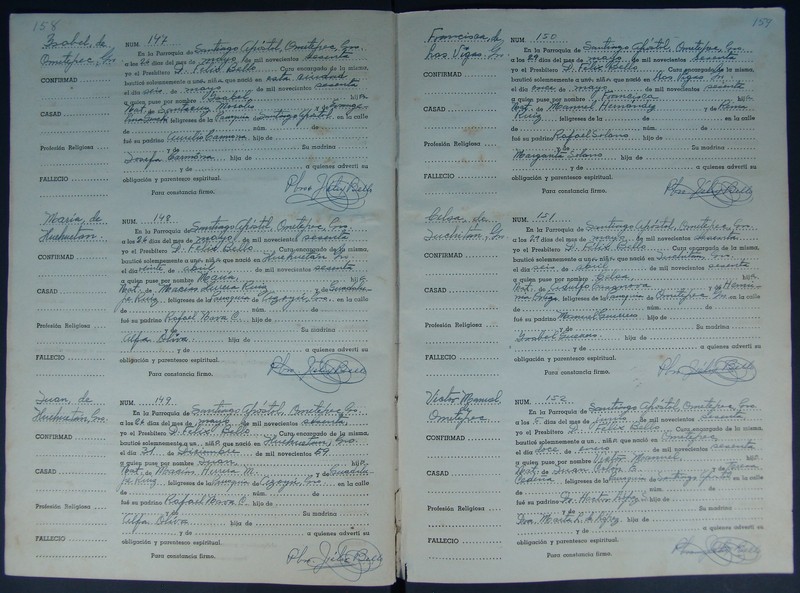 158
Isabel, de
Ometepec, Gro.
CONFIRMAD
CASAD
Profesión Religiosa
FALLECIO
NUM. 147
En la Parroquia de Santiago Apóstol, Ometepec, Gro.
a los 24 días del mes de mayo de mil novecientos sesenta
yo el Presbítero D. Felix Bello Cura encargado de la misma,
bauticé solemnemente a un niñ que nació en esta ciudad
el día seis de mayo de mil novecientos sesenta
a quien puse por nombre Isabel hij
de Morales y de
feligreses de la Parroquia de Santiago Apóstol en la calle
de núm. de
fué su padrino Aurelio Carmona hijo de
y de Su madrina
Josefa Carmona hija de
y de a quienes advertí su
obligación y parentesco espiritual.
Para constancia firmo.
Pbro. Félix Bello
María, de
Huehuetan
CONFIRMAD
CASAD
Profesión Religiosa
FALLECIO
NUM. 148
En la Parroquia de Santiago Apóstol, Ometepec, Gro.
a los 24 días del mes de mayo de mil novecientos sesenta
yo el Presbítero D. Felix Bello Cura encargado de la misma,
bauticé solemnemente a un niñ que nació en Huehuetán
el día veinte de abril de mil novecientos sesenta
a quien puse por nombre María hij
de Ruiz y de
Ruiz feligreses de la Parroquia de Azoyú, Gro. en la calle
de núm. de
fué su padrino Rafael Nava C. hijo de
y de Su madrina
Alfa Oliva hija de
y de a quienes advertí su
obligación y parentesco espiritual.
Para constancia firmo.
Pbro. Félix Bello
Juan, de
Huehuetán, Gro.
CONFIRMAD
CASAD
Profesión Religiosa
FALLECIO
NUM. 149
En la Parroquia de Santiago Apóstol, Ometepec, Gro.
a los 24 días del mes de mayo de mil novecientos sesenta
yo el Presbítero D. Felix Bello Cura encargado de la misma,
bauticé solemnemente a un niñ que nació en Huehuetán, Gro.
el día 31 de Diciembre de mil novecientos 59
a quien puse por nombre Juan hij
de M. y de
Ruiz feligreses de la Parroquia de Azoyú, Gro. en la calle
de núm. de
fué su padrino Rafael Nava C. hijo de
y de Su madrina
Alfa Oliva hija de
y de a quienes advertí su
obligación y parentesco espiritual.
Para constancia firmo.
Pbro. Félix Bello
159
Francisca, de
Las Vigas, Gro.
CONFIRMAD
CASAD
Profesión Religiosa
FALLECIO
NUM. 150
En la Parroquia de Santiago Apóstol, Ometepec, Gro.
a los 29 días del mes de mayo de mil novecientos sesenta
yo el Presbítero D. Felix Bello Cura encargado de la misma,
bauticé solemnemente a un niñ que nació en Las Vigas
el día once de mayo de mil novecientos sesenta
a quien puse por nombre Francisca hij
de Manuel Hernández y de
Ruiz feligreses de la de en la calle
de núm. de
fué su padrino Rafael Solano hijo de
y de Su madrina
Margarita Solano hija de
y de a quienes advertí su
obligación y parentesco espiritual.
Para constancia firmo.
Pbro. Félix Bello
Celsa, de
CONFIRMAD
CASAD
Profesión Religiosa
FALLECIO
NUM. 151
En la Parroquia de Santiago Apóstol, Ometepec, Gro.
a los 29 días del mes de mayo de mil novecientos sesenta
yo el Presbítero D. Felix Bello Cura encargado de la misma,
bauticé solemnemente a un niñ que nació en
el día seis de abril de mil novecientos sesenta
a quien puse por nombre Celsa hij
de y de
feligreses de la Parroquia de Ometepec, Gro. en la calle
de núm. de
fué su padrino Manuel hijo de
y de Su madrina
Isabel hija de
y de a quienes advertí su
obligación y parentesco espiritual.
Para constancia firmo.
Pbro. Félix Bello
Victor Manuel
de
Ometepec
CONFIRMAD
CASAD
Profesión Religiosa
FALLECIO
NUM. 152
En la Parroquia de Santiago Apóstol, Ometepec, Gro.
a los días del mes de de mil novecientos sesenta
yo el Presbítero D. Felix Bello Cura encargado de la misma,
bauticé solemnemente a un niñ que nació en Ometepec
el día doce de enero de mil novecientos sesenta
a quien puse por nombre Victor Manuel hij
de Juan y de
feligreses de la Parroquia de Santiago Apóstol en la calle
de núm. de
fué su padrino Dr. López hijo de
y de Su madrina
Dra. López hija de
y de a quienes advertí su
obligación y parentesco espiritual.
Para constancia firmo.
Pbro. Félix Bello